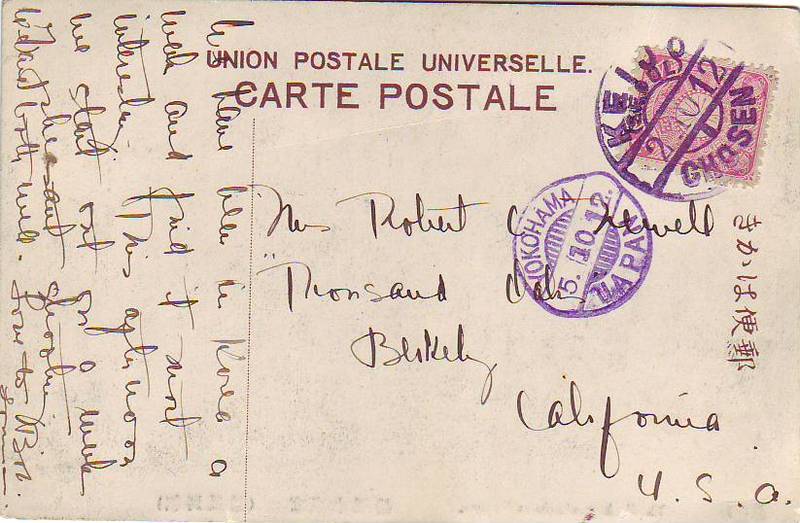 UNION POSTALE UNIVERSELLE.
CARTE POSTALE
KEIJO
2.10.12
CHOSEN
YOKOHAMA
5.10.12.
JAPAN
きかは便郵
Mrs Robert C. Newell
"Thousand Oaks"
Berkeley
California
U. S. A.
We have been in Korea a
week and find it most
interesting. This afternoon
we start out for a week
Love to